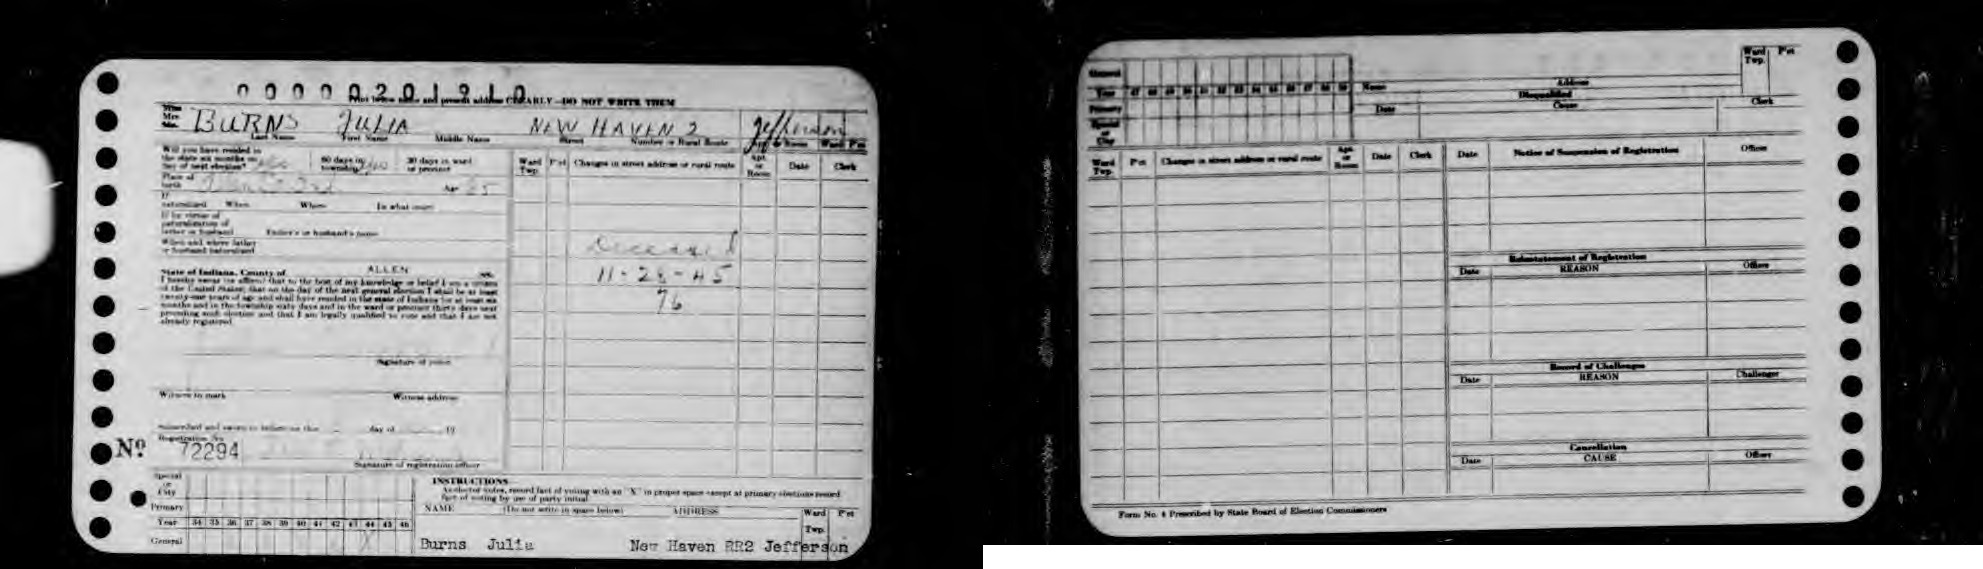 0 0 0 0 0 2 0 1 9 1 0
Print below name and present address CLEARLY—DO NOT WRITE THEM
Miss
Mrs.
Mr.
BURNS JULIA NEW HAVEN 2 Jefferson
Last Name First Name Middle Name Street Number or Rural Route Apt. or Room Ward Pct
Will you have resided in
the state six months on
day of next election? yes 60 days in
township? yes 30 days in ward
or precinct
Place of
birth Ind Age 65
If
naturalized When Where In what court
If by virtue of
naturalization of
father or husband Father's or husband's name
When and where father
or husband naturalized
State of Indiana, County of ALLEN ss.
I hereby swear (or affirm) that to the best of my knowledge or belief I am a citizen
of the United States; that on the day of the next general election I shall be at least
twenty-one years of age and shall have resided in the state of Indiana for at least six
months and in the township sixty days and in the ward or precinct thirty days next
preceding such election and that I am legally qualified to vote and that I am not
already registered.
Signature of voter
Witness to mark Witness address
Subscribed and sworn to before me this day of 19
Registration No.
Nº 72294
Signature of registration officer
Ward
Twp. Pct Changes in street address or rural route Apt.
or
Room Date Clerk
Deceased
11-28-45
76
Special
or
City
Primary
Year 34 35 36 37 38 39 40 41 42 43 44 45 46
General X
INSTRUCTIONS
As elector votes, record fact of voting with an "X" in proper space except at primary elections record
fact of voting by use of party initial
NAME (Do not write in space below) ADDRESS Ward
Twp. Pct
Burns Julia New Haven RR2 Jefferson
General
Year 47 48 49 50 51 52 53 54 55 56 57 58 59
Primary
Special
or
City
Name Address Ward
Twp. Pct
Disqualified
Date Cause Clerk
Ward
Twp. Pct Changes in street address or rural route Apt.
or
Room Date Clerk
Date Notice of Suspension of Registration Officer
Reinstatement of Registration
Date REASON Officer
Record of Challenges
Date REASON Challenger
Cancellation
Date CAUSE Officer
Form No. 4 Prescribed by State Board of Election Commissioners